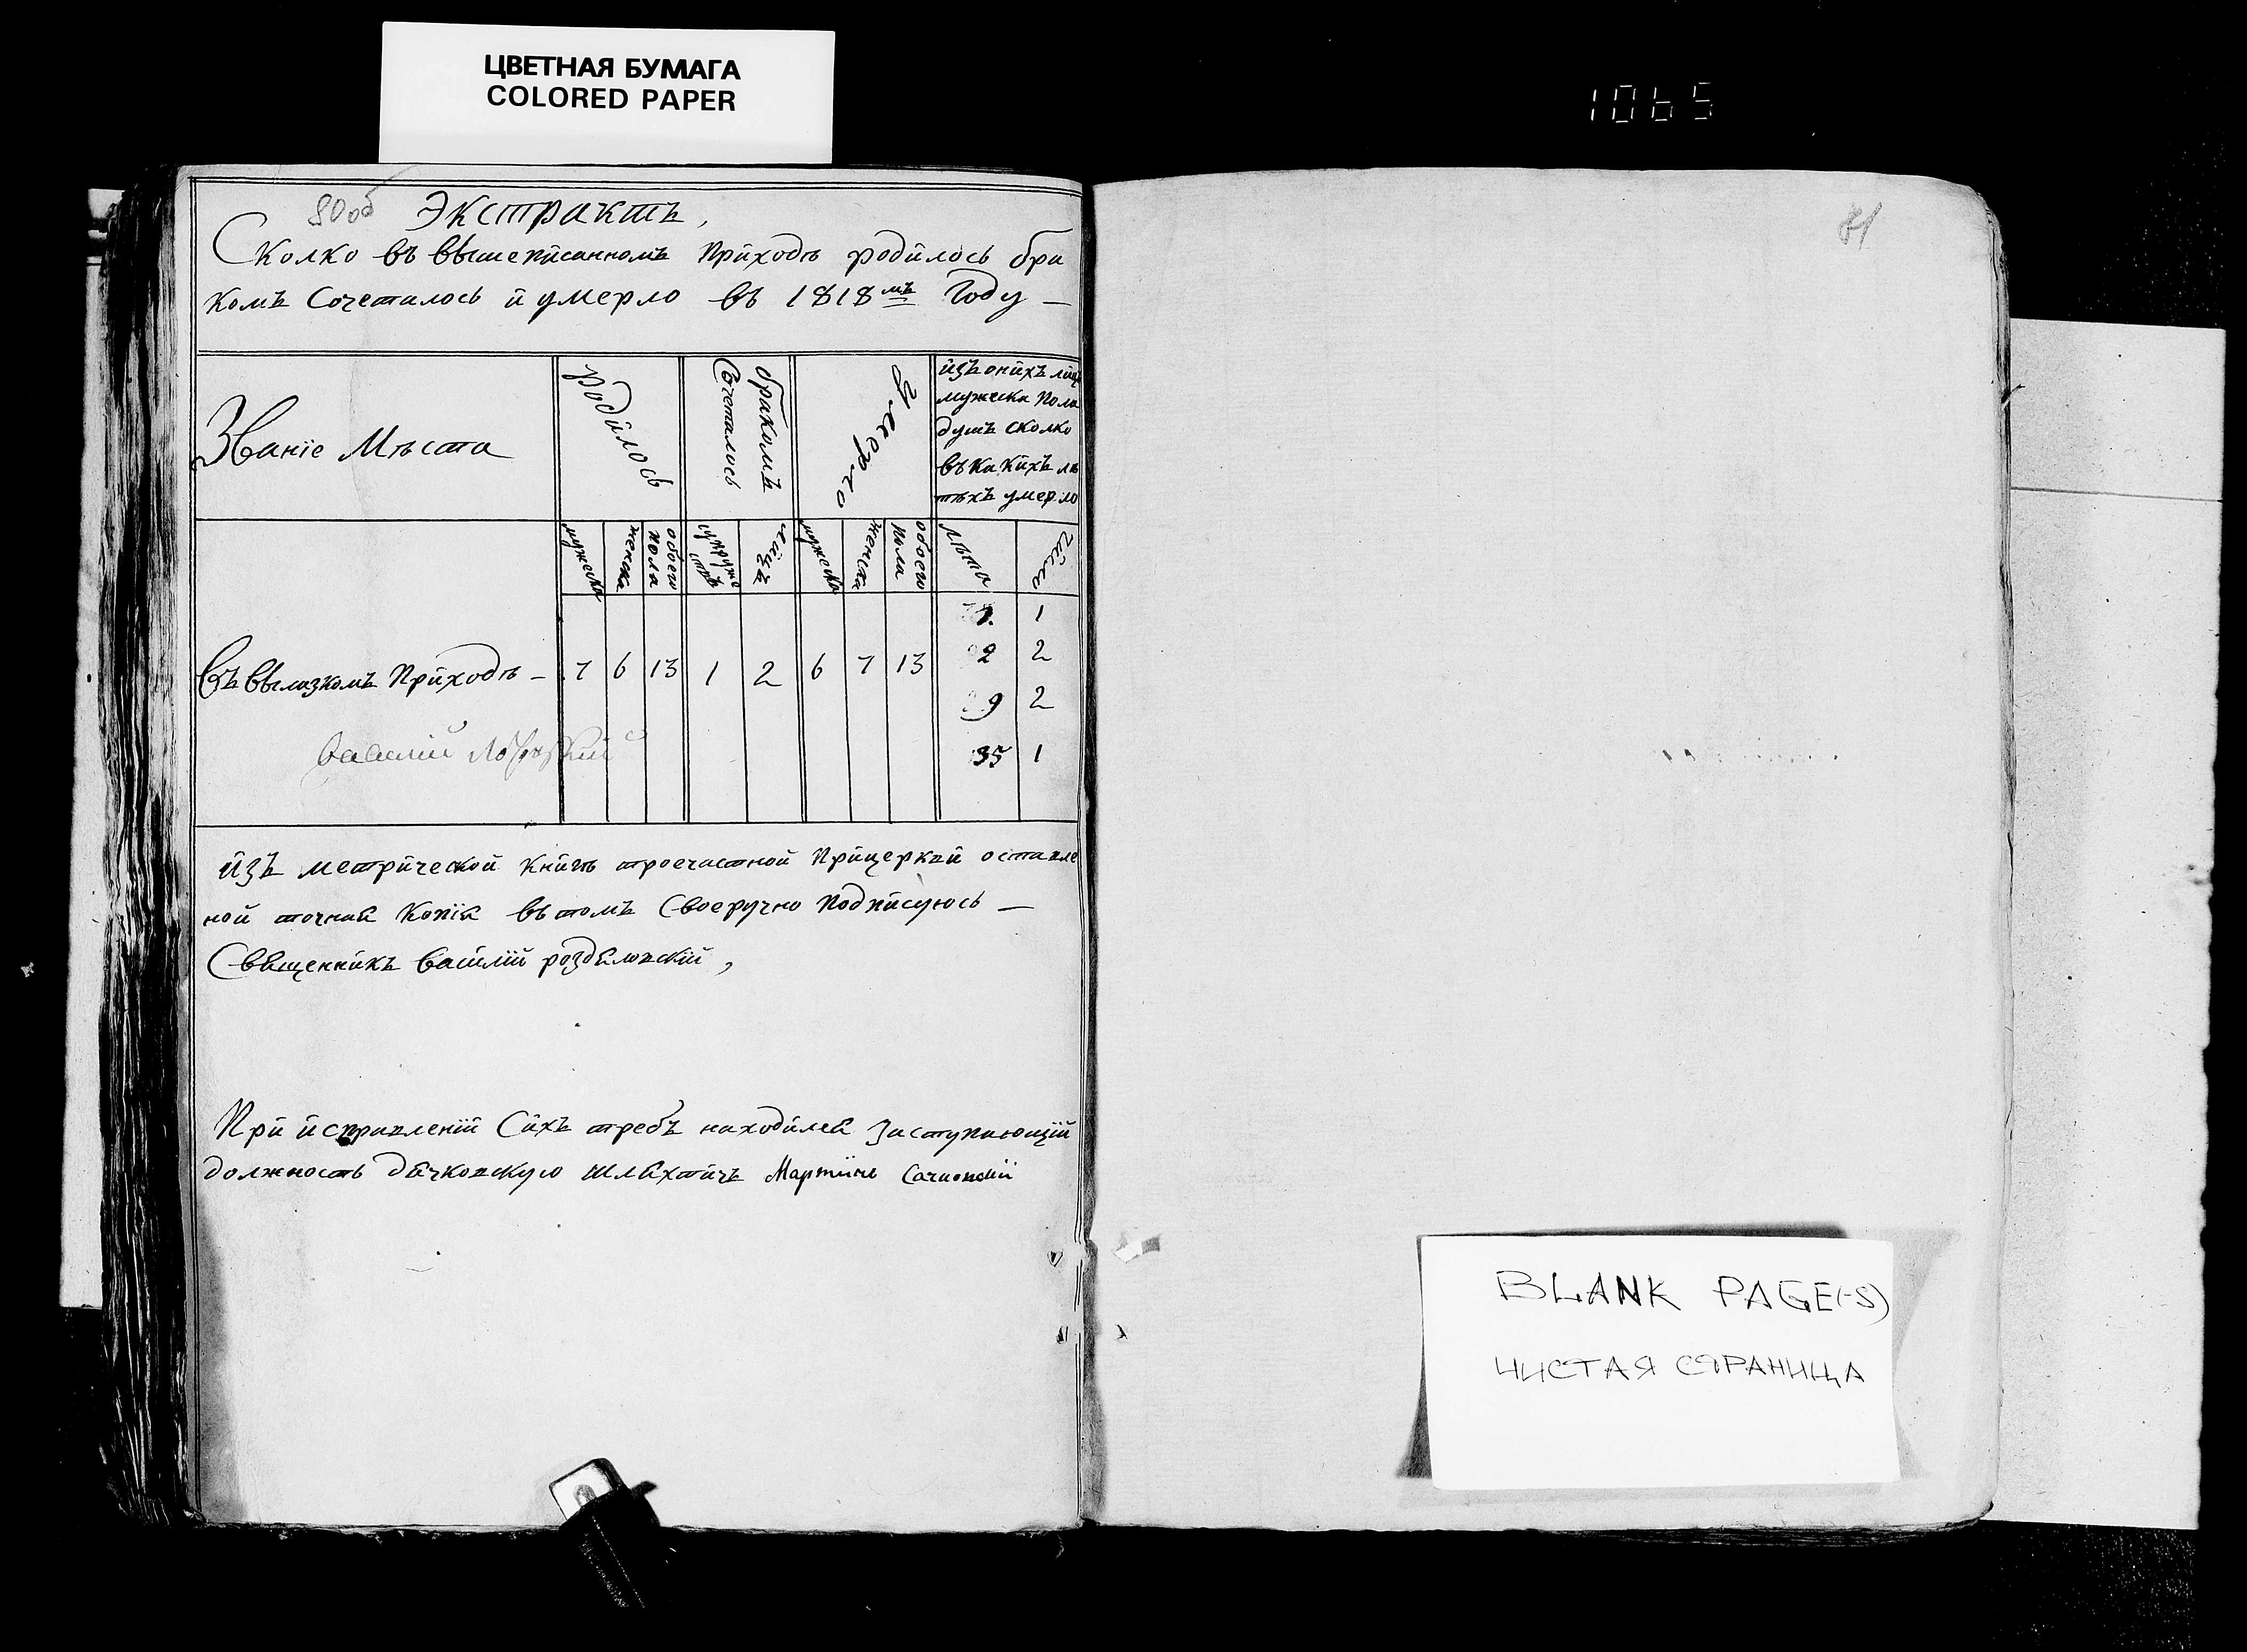 ЦВЕТНАЯ БУМАГА
COLORED PAPER
1065
80об
Экстрактъ,
Сколко въ вышеписанномъ приходѣ родилось бра
комъ сочеталось и умерло въ 1818мъ Году —
Званіе Мѣста
родилось
бракомъ Сочеталось
умерло
изъ онихъ лицъ
мужеска пола
душъ сколко
въ какихъ лѣ
тѣхъ умерло
мужеска
женска
обоего пола
супруже
лицъ
мужеска
женска
обоего пола
лѣта
1 1
2 2
Въ вылазкомъ приходѣ — 7 6 13 1 2 6 7 13
9 2
35 1
Василій
изъ метрической книгѣ троечастной прицеркви оставле
ной точная копія въ томъ своеручно подписуюсь —
Священникъ василій розделовскій,
При исправленіи сихъ требъ находился заступающій
должность дячковскую шляхтичъ Мартинъ
81
BLANK PAGE(-S)
ЧИСТАЯ СТРАНИЦА